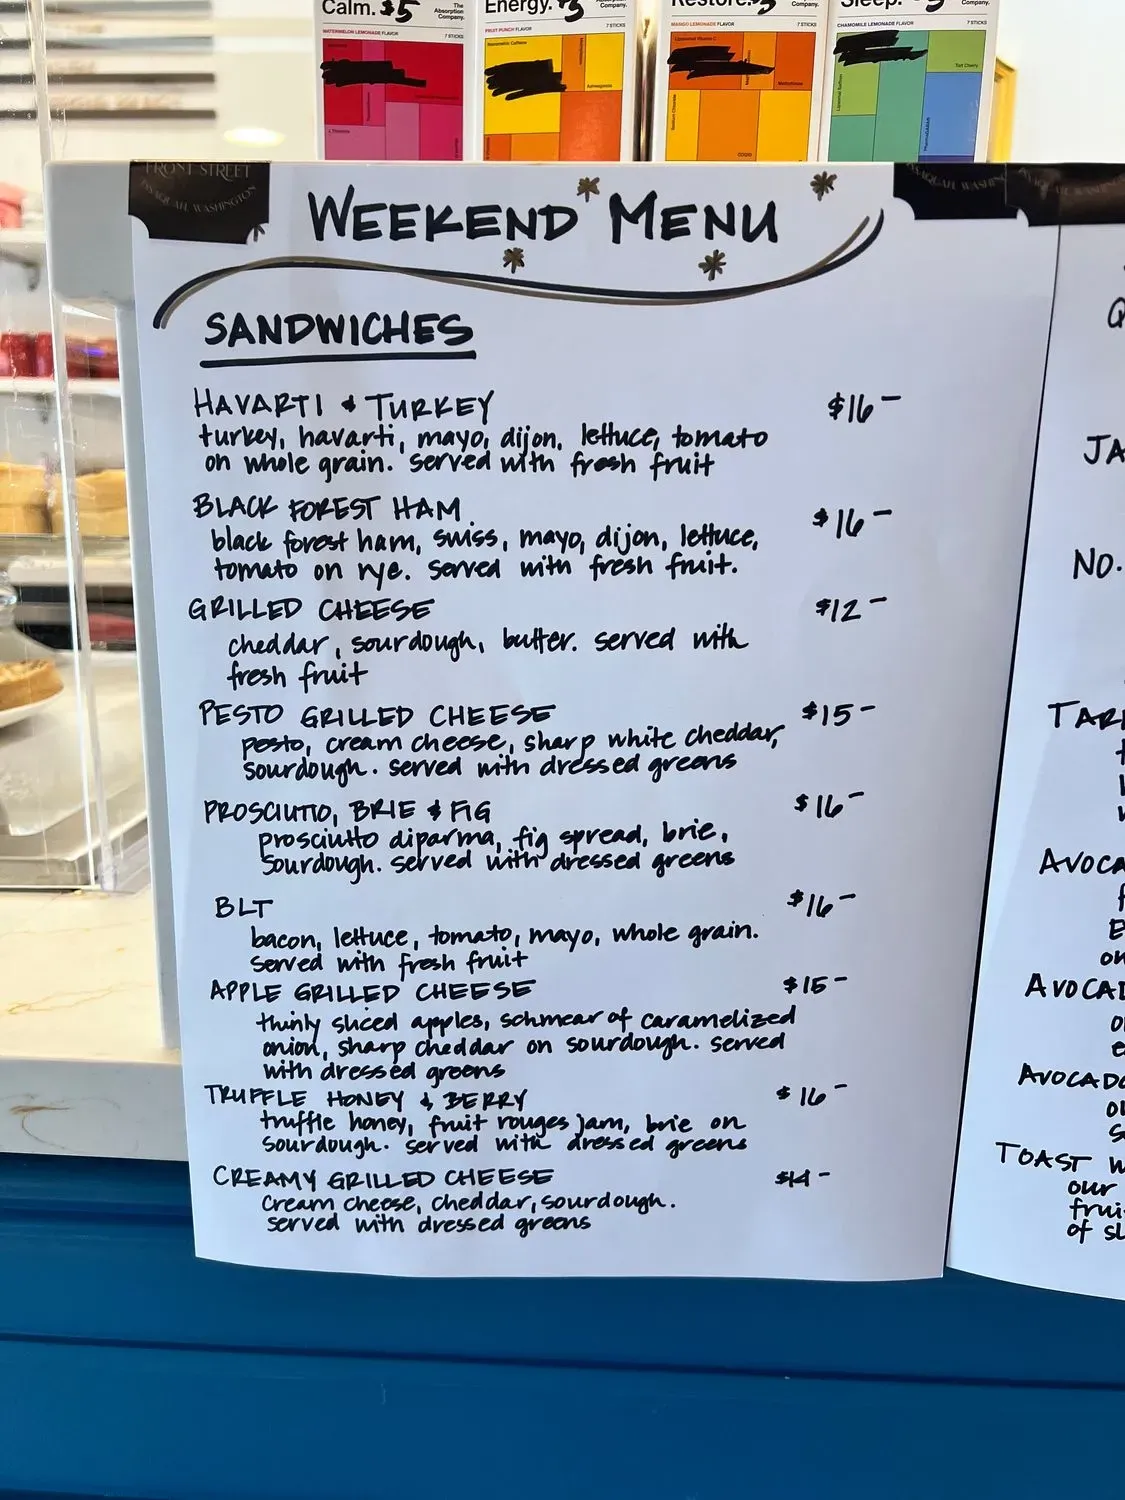 Calm. $5
The Absorption Company.
WATERMELON LEMONADE FLAVOR
7 STICKS
Energy. $5
The Absorption Company.
FRUIT PUNCH FLAVOR
7 STICKS
Restore. $5
Company.
MANGO LEMONADE FLAVOR
7 STICKS
Sleep. $5
Company.
CHAMOMILE LEMONADE FLAVOR
7 STICKS
Tart Cherry
FRONT STREET
ISSAQUAH, WASHINGTON
WEEKEND MENU
SANDWICHES
HAVARTI & TURKEY $16-
turkey, havarti, mayo, dijon, lettuce, tomato
on whole grain. served with fresh fruit
BLACK FOREST HAM $16-
black forest ham, swiss, mayo, dijon, lettuce,
tomato on rye. served with fresh fruit.
GRILLED CHEESE $12-
cheddar, sourdough, butter. served with
fresh fruit
PESTO GRILLED CHEESE $15-
pesto, cream cheese, sharp white cheddar,
sourdough. served with dressed greens
PROSCIUTTO, BRIE & FIG $16-
prosciutto diparma, fig spread, brie,
sourdough. served with dressed greens
BLT $16-
bacon, lettuce, tomato, mayo, whole grain.
served with fresh fruit
APPLE GRILLED CHEESE $15-
thinly sliced apples, schmear of caramelized
onion, sharp cheddar on sourdough. served
with dressed greens
TRUFFLE HONEY & BERRY $16-
truffle honey, fruit rouges jam, brie on
sourdough. served with dressed greens
CREAMY GRILLED CHEESE $14-
cream cheese, cheddar, sourdough.
served with dressed greens
JA
NO.
TAR
AVOCA
on
AVOCAD
AVOCADO
TOAST W
our
frui
of sl